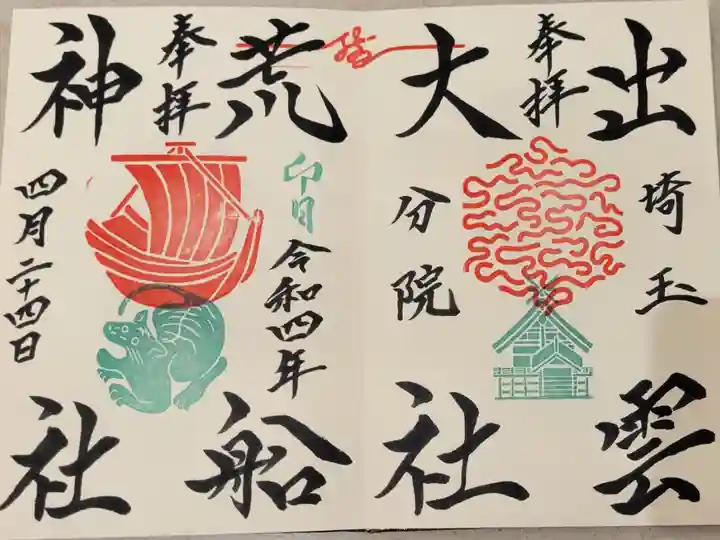 奉拝
出雲
埼玉
大社
分院
奉拝
荒船
卯月
令和四年
神社
四月二十四日